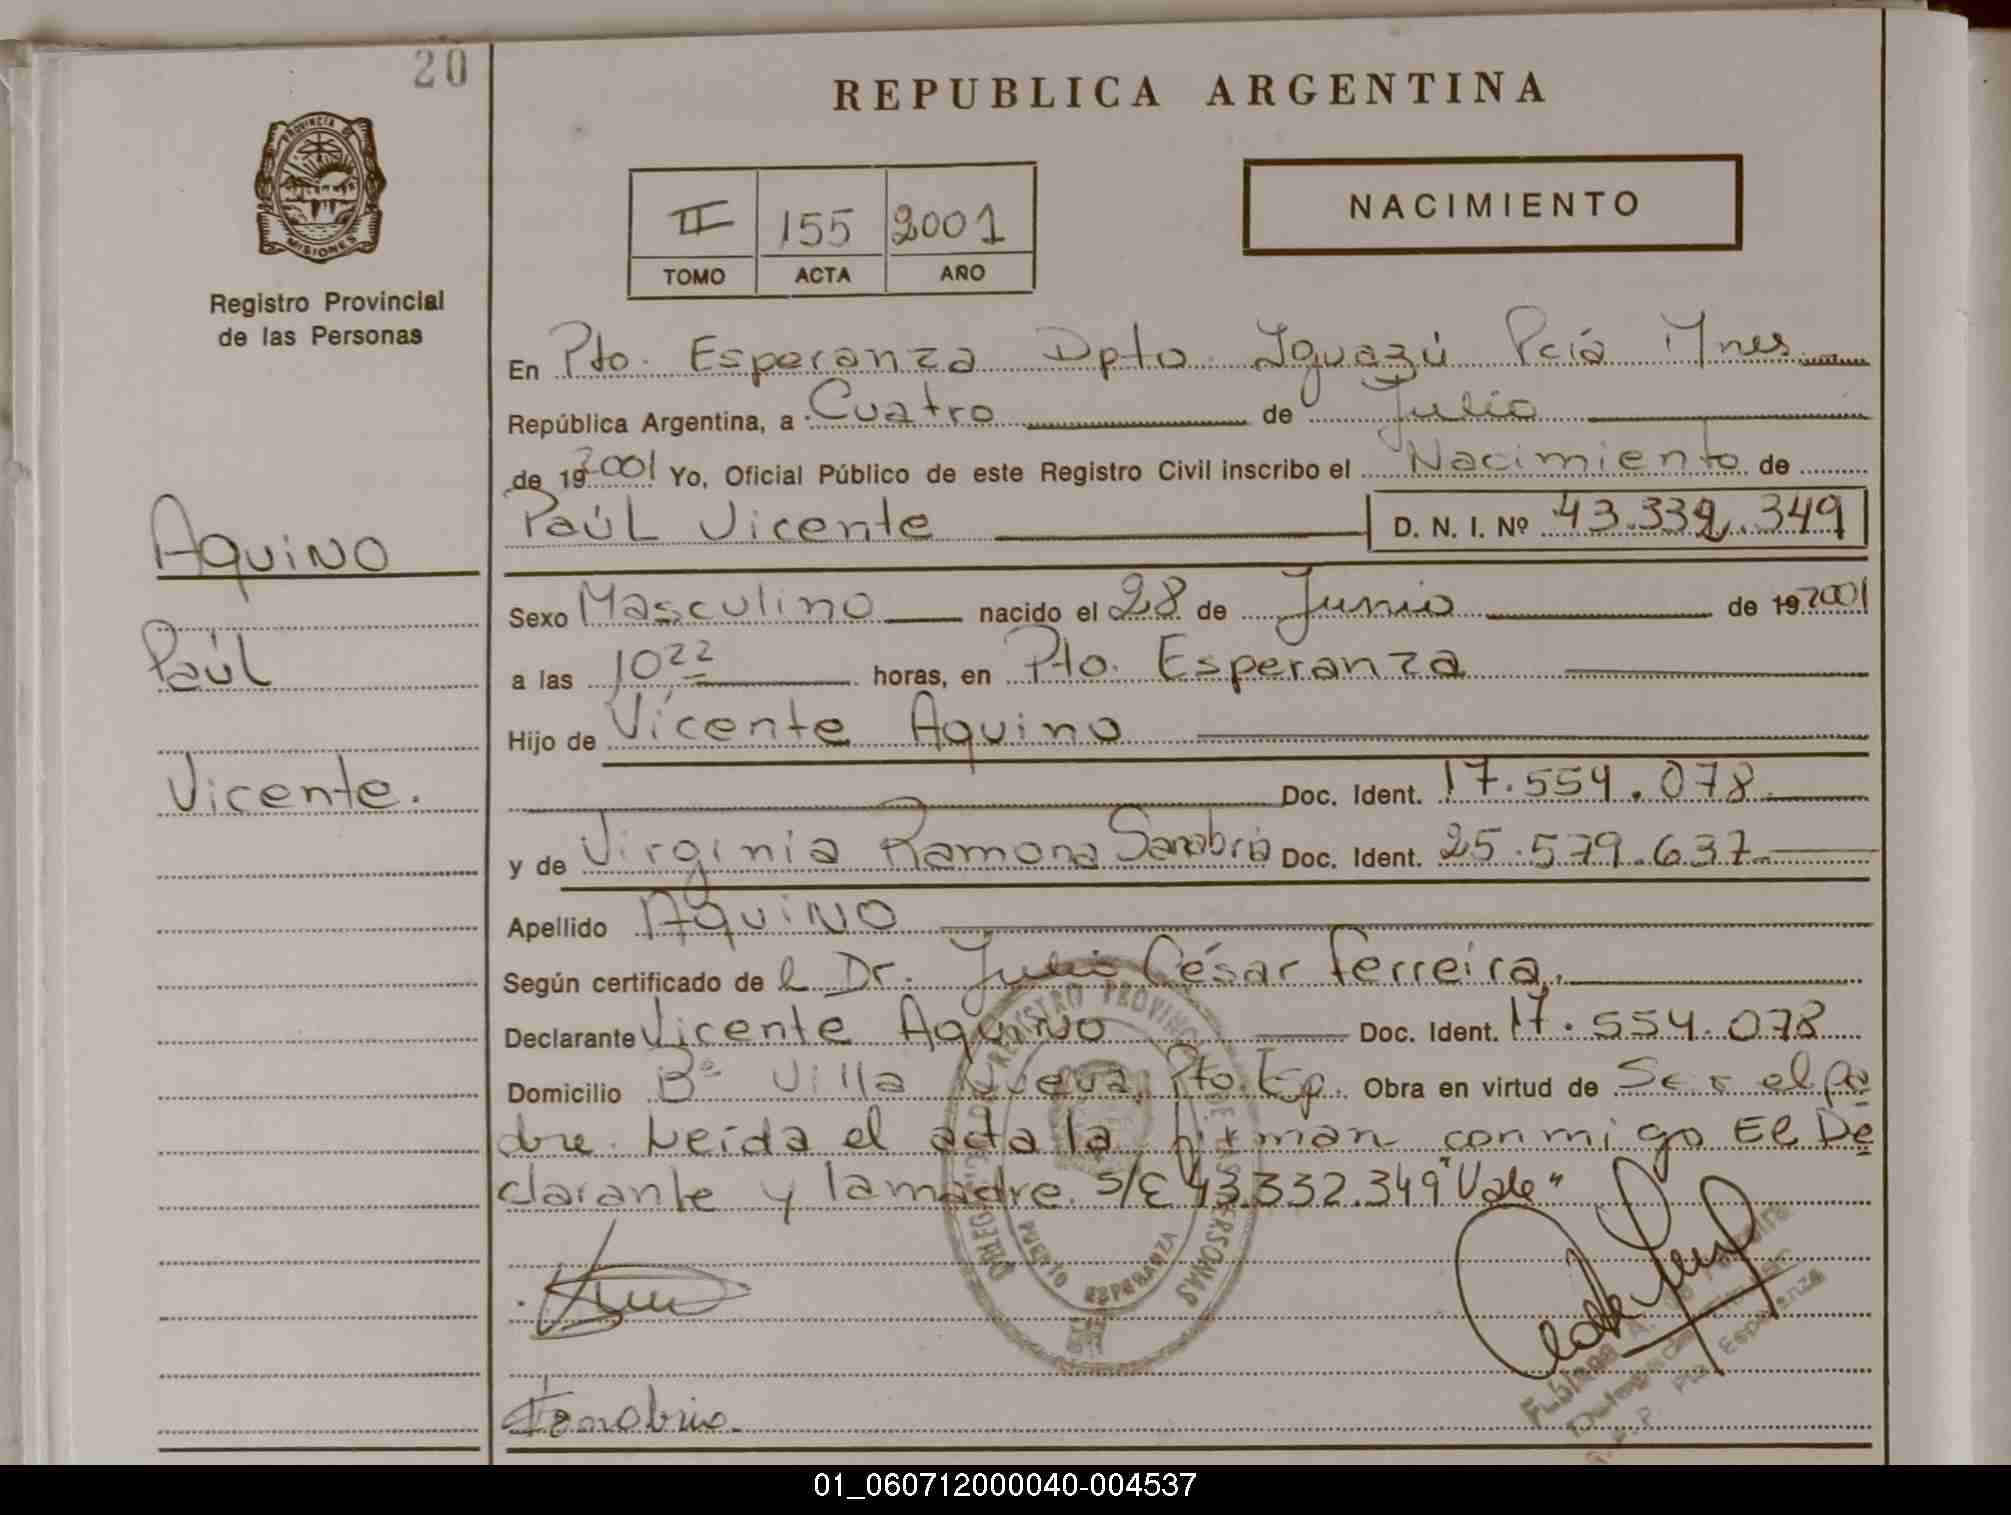 20
REPUBLICA ARGENTINA
PROVINCIA DE
MISIONES
Registro Provincial
de las Personas
II 155 2001
TOMO ACTA AÑO
NACIMIENTO
En Pto. Esperanza Dpto. Iguazú Pcía Mnes
República Argentina, a Cuatro de Julio
de 19 2001 Yo, Oficial Público de este Registro Civil inscribo el Nacimiento de
Paúl Vicente D. N. I. Nº 43.332.349
Aquino
Paúl
Vicente.
Sexo Masculino nacido el 28 de Junio de 19 2001
a las 10 22 horas, en Pto. Esperanza
Hijo de Vicente Aquino
Doc. Ident. 17.554.078
y de Virginia Ramona Sanabria Doc. Ident. 25.579.637
Apellido Aquino
Según certificado de l Dr. Julio César Ferreira,
Declarante Vicente Aquino Doc. Ident. 17.554.078
Domicilio Bº Villa Nueva, Pto. Esp. Obra en virtud de Ser el pa
dre. Leída el acta la firman conmigo El De
clarante y la madre. S/E 43.332.349 "Vale"
REGISTRO PROVINCIAL DE LAS PERSONAS
PUERTO ESPERANZA
Sanabria.
Fabiana A.
Pto Esperanza
01_060712000040-004537